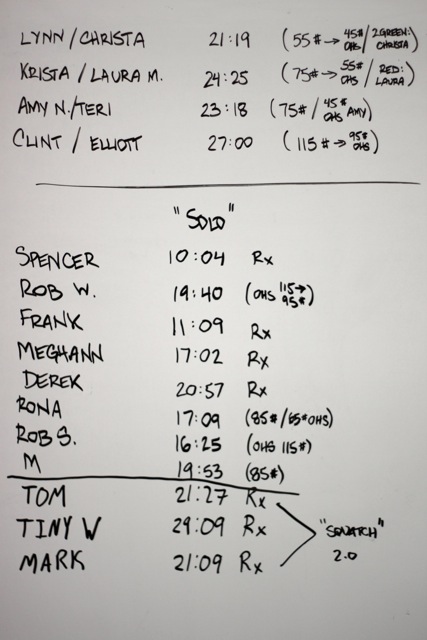 LYNN / CHRISTA 21:19 (55# → 45# OHS / 2 GREEN: CHRISTA)
KRISTA / LAURA M. 24:25 (75# → 55# OHS / RED: LAURA)
AMY N. / TERI 23:18 (75# / 45# OHS AMY)
CLINT / ELLIOTT 27:00 (115# → 95# OHS)
"SOLO"
SPENCER 10:04 Rx
ROB W. 19:40 (OHS 115 → 95#)
FRANK 11:09 Rx
MEGHANN 17:02 Rx
DEREK 20:57 Rx
RONA 17:09 (85# / 65# OHS)
ROB S. 16:25 (OHS 115#)
M 19:53 (85#)
TOM 21:27 Rx
TINY W 29:09 Rx
MARK 21:09 Rx
2.0